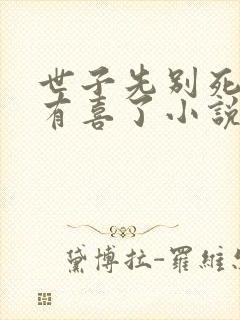 世子先别死
有喜了小說
黛博拉-羅維